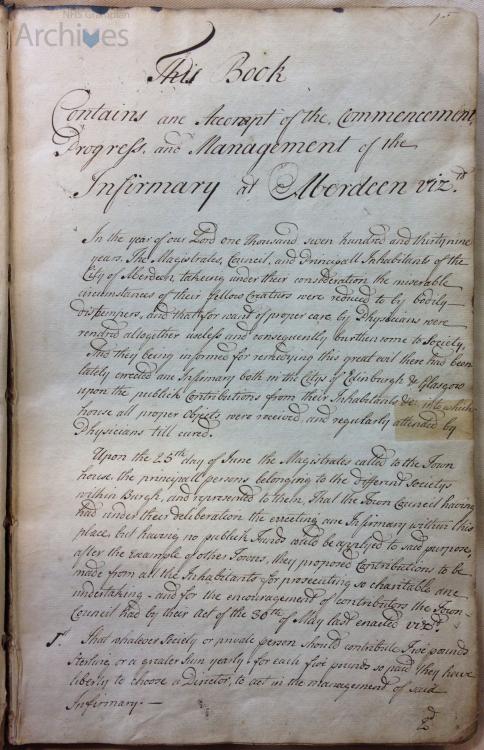 NHS Grampian
Archives
This Book
Contains ane Accompt of the Commencement,
Progress, and Management of the
Infirmary at Aberdeen vizt.
In the year of our Lord one thousand seven hundred and thirty nine
years. The Magistrates, Council, and Principall Inhabitants of the
City of Aberdeen, takeing under their consideration the miserable
circumstances of their fellow Creatures were reduced to by bodily
distempers, and that for want of proper care by Physicians were
rendred altogether useless and consequently burthensome to Society,
And they being informed for remedying this great evil there had been
lately erected ane Infirmary both in the Citys of Edinburgh & Glasgow
upon the publick Contributions from their Inhabitants &c into which
house all proper objects were received, and regularly attended by
Physicians till cured.
Upon the 25th day of June the Magistrates called to the Town
house, the principall persons belonging to the different Societys
within Burgh, and represented to them, That the Town Council having
had under their deliberation the erecting ane Infirmary within this
place, but having no publick Funds could be applyed to said purpose,
after the Example of other Towns, they proposed Contributions to be
made from all the Inhabitants for prosecuting so charitable ane
undertaking - and for the encouragement of contributors the Town
Council had by their Act of the 30th of May last enacted vizt.
1st. That whatever Society or private person should contribute Five pounds
Sterling or a greater Sum yearly, for each five pounds so paid they have
liberty to choose a Director, to act in the management of said
Infirmary. —
2d